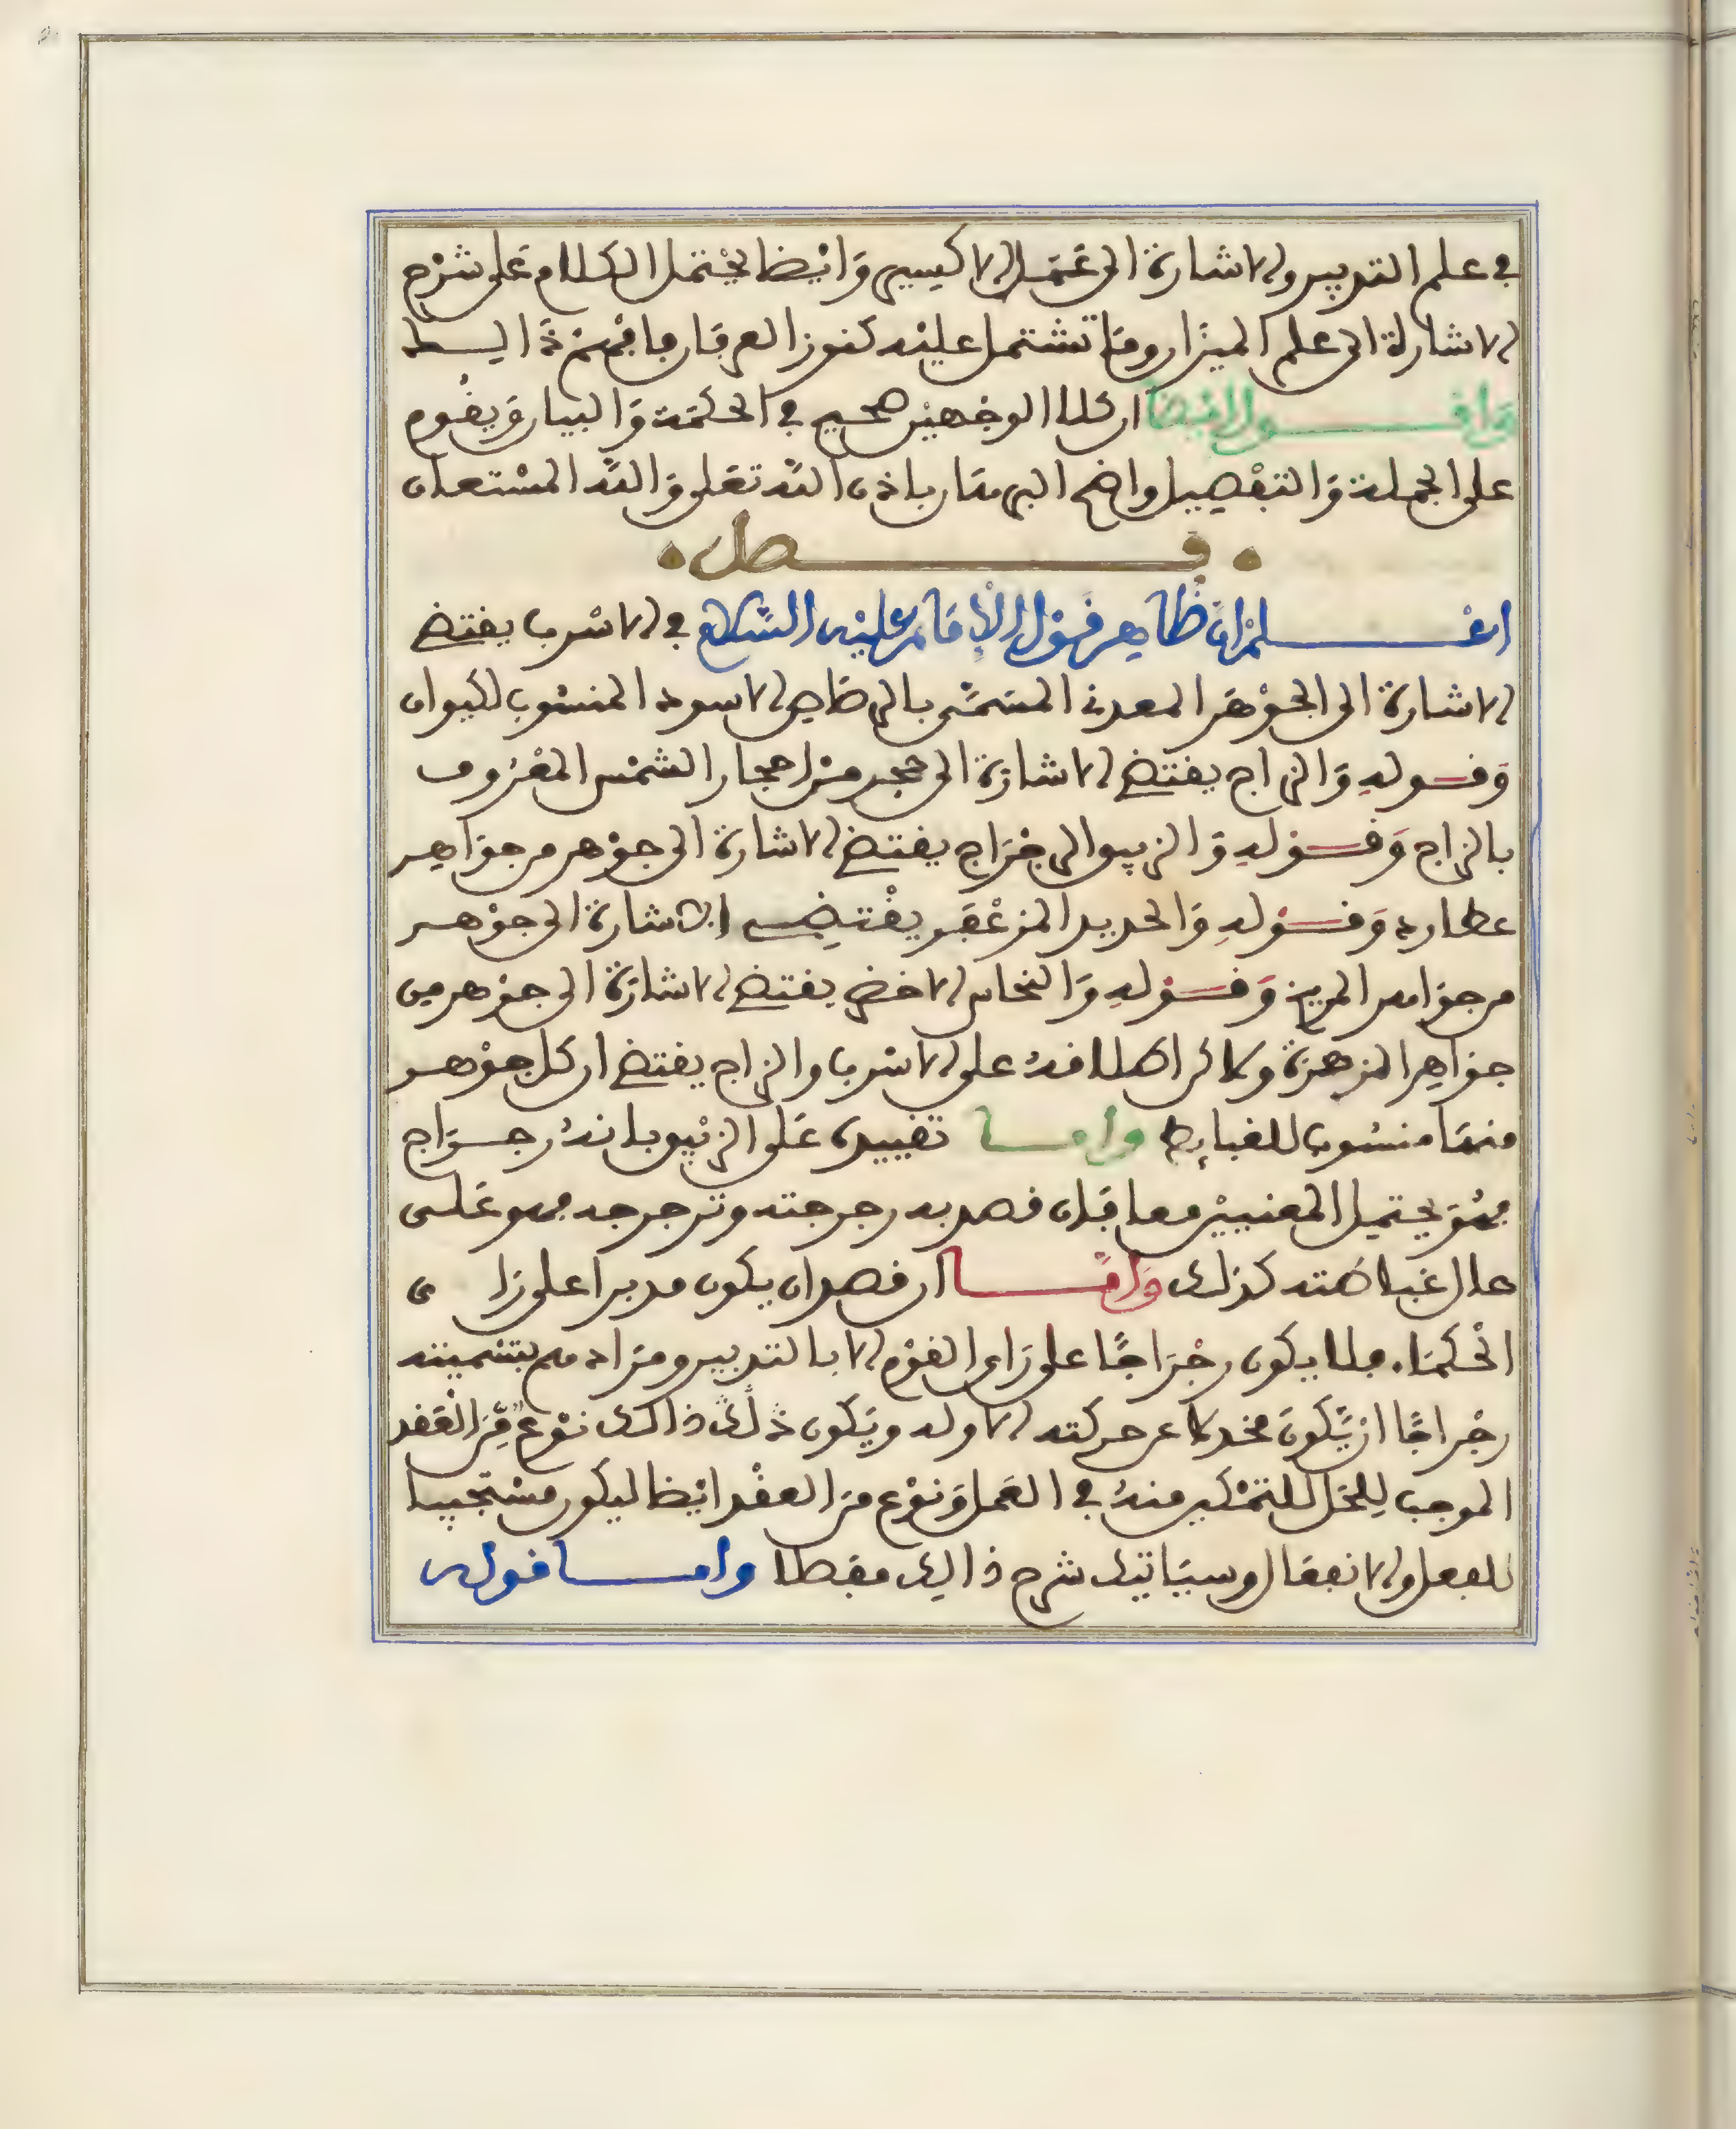 في علم التدبير والاشارة الى عَمَل الاكسير وَايْضا يحْتمل الكلام عَلى شرْح
الاشارة الى علم الميزان ومَا تشتمل عليْه كنوز العرفان فافهَمْ ذَالـــك
وَاقـــــول ايْضاً ان كلا الوجْهيْن صحيح في الحكمَة وَالبيان وَيقُوم
على الجملة وَالتفْصيل واضح البرهَان باذن اللّه تعَلى وَاللّه المسْتعان
فـــــصل
اعْــــلم ان ظاهر قوْل الاِمَام عليْه السَّلام في الاسْرب يقتضي
الاشارة الى الجوْهَر المعدني المسَمَّى بالرصَاص الاسود المنسُوب لكيوان
وَقــوله وَالزاج يقتضي الاشارَة الى حجر من احجار الشمْس المعْرُوف
بالزاج وَقــوْلهِ وَالزيبق الرجْرَاج يقتضي الاشارة الى جوْهر من جوَاهر
عطارد وَقــوْلهِ وَالحديد المزعْفر يقْتضِي الاشارة الى جوْهر
من جوَاهر المريخ وَقــوْلهِ وَالنحاس الاخضر يقتضي الاشارَة الى جوْهر من
جوَاهِر الزهرَة ولاكن اطلاقهُ على الاسْرب والزاج يقتضي ان كل جوْهر
منهَا منسُوب للغبايط وامــا تقييدهُ عَلى الزيْبق بانهُ رجــرَاج
فهُوَ يحتمل المعنييْن معا فَان قصد به رجرجته وترجرجه فهو عَلى
حال غباطَته كذلك وَامَّــــا ان قصد ان يكون مدبرا على رَاى
الْحكمَاء فلا يكون رجْرَاجًا على رَاى القوْم الا بالتدبير ومرَادهم بتسْميته
رجْرَاجًا انْ يَّكونَ مخدلا عن حركته الاوله ويَكون ذلك ذالك نوْع مِّنَ الْعَقد
الموجب لِلحَل للتمْكين منهُ في العَمل وَنوْع منَ العقْد ايْضا ليكون مسْتجيبا
للفعل والانفعَال وسيَاتيك شرح ذالك مفصلا وامــــا قوله